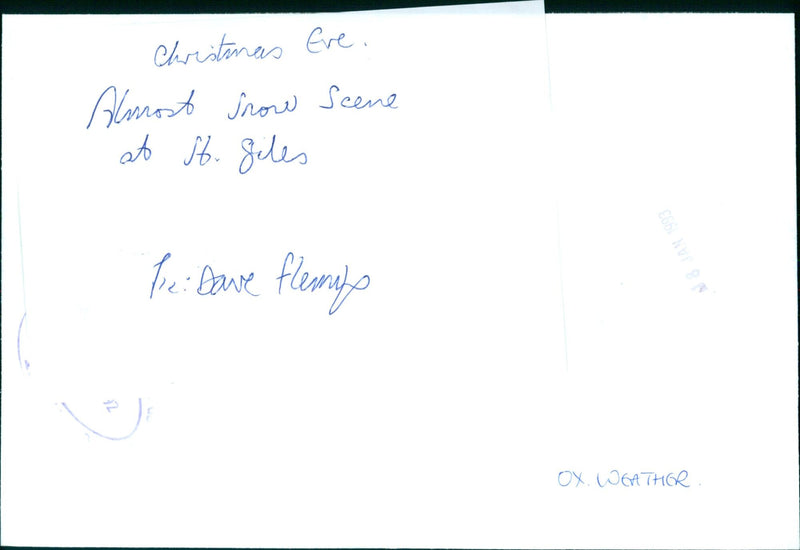 Christmas Eve.
Almost Snow Scene
at St. Giles
Pic: Dave Fleming
8 JAN 1993
OX. WEATHER.